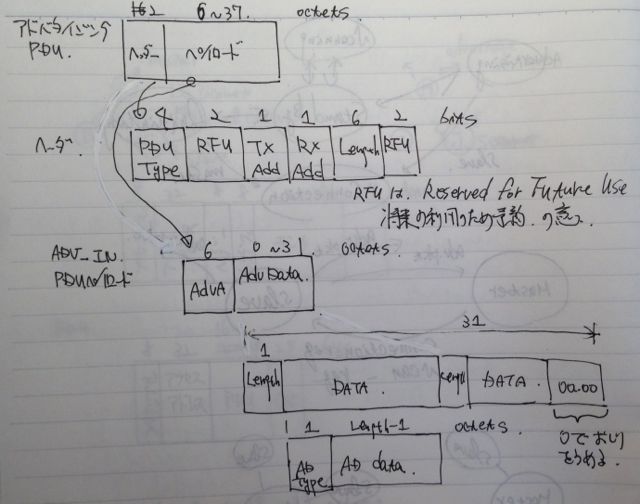 2 6~37 octets
アドバタイジング
PDU.
ヘッダー ペイロード
4 2 1 1 6 2 bits
ヘーダ
PDU Type RFU TX Add RX Add Length RFU
RFU は. Reserved for Future Use
将来の利用のため予約. の意.
ADV_IN.
PDUペイロード
6 0~31 octets.
AdvA AdvData.
31
1
Length DATA. Length DATA. 00.00
1 Length-1 octets.
AD type AD data.
0でおわり
をうめる.